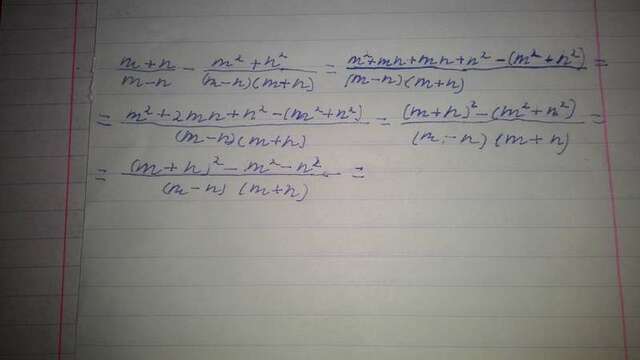 (m+n)/(m-n) - (m²+n²)/((m-n)(m+n)) = (m²+mn+mn+n²-(m²+n²))/((m-n)(m+n)) =
= (m²+2mn+n²-(m²+n²))/((m-n)(m+n)) = ((m+n)²-(m²+n²))/((m-n)(m+n)) =
= ((m+n)²-m²-n²)/((m-n)(m+n)) =